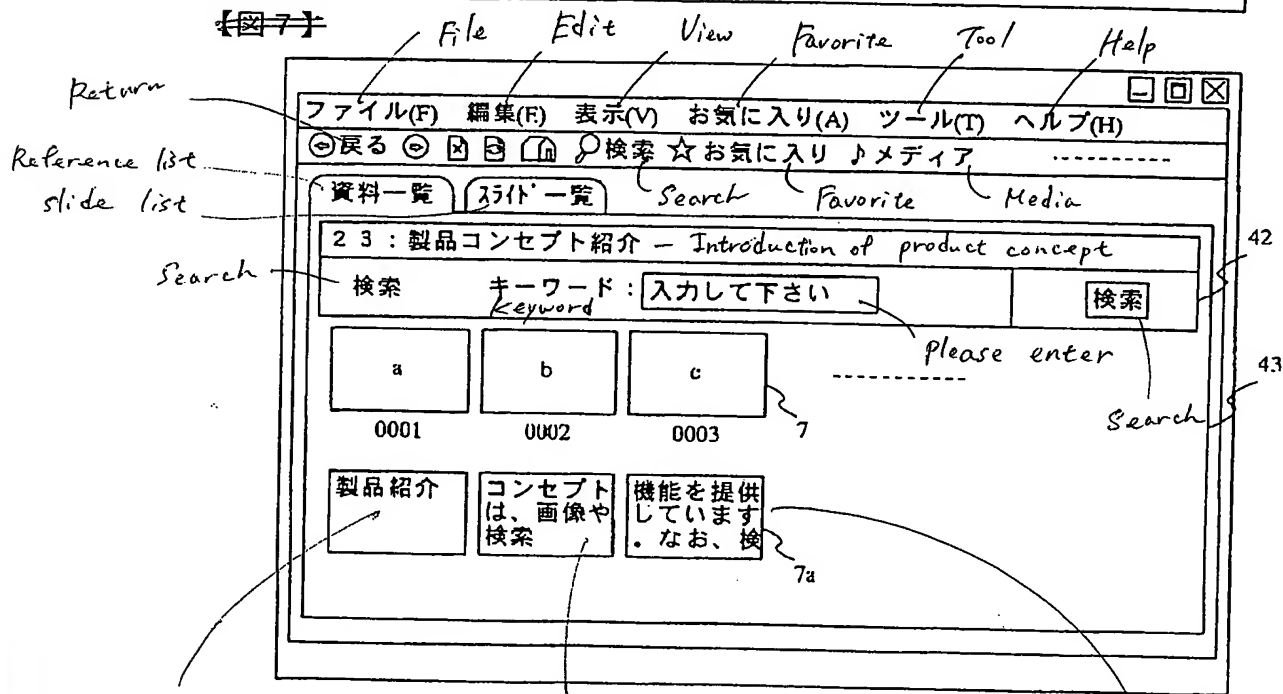 【図7】
File Edit View Favorite Tool Help
Return
ファイル(F) 編集(E) 表示(V) お気に入り(A) ツール(T) ヘルプ(H)
戻る 検索 ☆お気に入り ♪メディア ----------
Reference list
slide list
資料一覧 スライド一覧 Search Favorite Media
23:製品コンセプト紹介 - Introduction of product concept
42
Search
検索 キーワード: 入力して下さい 検索
Keyword
Please enter
43
a b c ----------
Search
0001 0002 0003 7
製品紹介 コンセプト 機能を提供
は、画像や しています
検索 。なお、検
7a